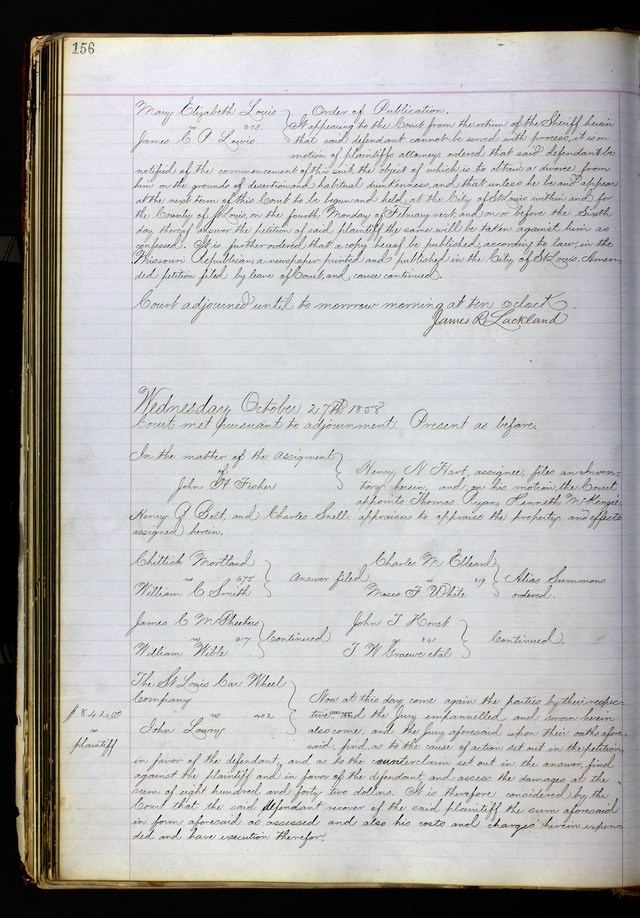 156
Mary Elizabeth Louis Order of Publication.
vs It appearing to the Court from the return of the Sheriff herein
James C P Lewis that said defendant cannot be served with process, it is on
motion of plaintiffs attorney ordered that said defendant be
notified of the commencement of this suit the object of which is to obtain a divorce from
him on the grounds of desertion and habitual drunkenness, and that unless he be and appear
at the next term of this Court to be begun and held at the City of St Louis within and for
the County of St Louis, on the fourth Monday of February next, and on or before the Sixth
day thereof answer the petition of said plaintiff the same will be taken against him as
confessed. It is further ordered that a copy hereof be published, according to law, in the
Missouri Republican a newspaper printed and published in the City of St Louis. Amen-
ded petition filed by leave of Court, and cause continued.
Court adjourned until to morrow morning at ten oclock.
James R. Lackland
Wednesday October 27th 1858
Court met pursuant to adjournment. Present as before.
In the matter of the Assigment
of Henry N Hart, assignee, files an Inven-
John H Fisher tory herein, and on his motion, the Court
appoints Thomas Ryan, Kenneth McKenzie
Henry G Belt, and Charles Snell appraisers to appraise the property and effects
assigned herein.
Chittick Mortland Charles M Elleard
vs 675 Answer filed vs 719 Alias Summons
William C Smith Moses F White ordered.
James C McPheeters John T Horst
vs Continued vs Continued.
William Wible T W Graewe et al
The St Louis Car Wheel
Company Now at this day come again the parties by their respec-
$842.00 vs 402 tive and the Jury empannelled and sworn herein
vs John Lowry also come, and the Jury aforesaid upon their oaths afore-
plaintiff said, find, as to the cause of action set out in the petition,
in favor of the defendant, and as to the counterclaim set out in the answer, find
against the plaintiff and in favor of the defendant, and assess the damages at the
sum of eight hundred and forty two dollars. It is therefore considered by the
Court that the said defendant recover of the said plaintiff the sum aforesaid
in form aforesaid as assessed and also his costs and charges herein expen-
ded and have execution therefor.